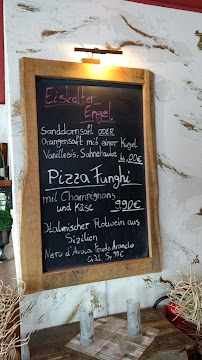 Eiskalter
Engel
Sanddornsaft ODER
Orangensaft mit einer Kugel
Vanilleeis, Sahnehaube 4,00€
Pizza Funghi
mit Champignons
und Käse 9,90€
Italienischer Rotwein aus
Sizilien
Nero d'Avola Feudo Arancio
0,2l 5,90€